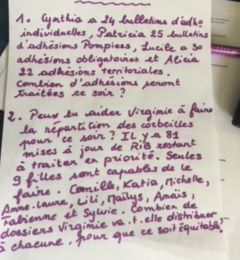 1. Cynthia a 24 bulletins d'adh°
individuelles, Patricia 25 bulletins
d'adhésions Pompiers, Lucile a 30
adhésions obligatoires et Alicia
22 adhésions territoriales.
Combien d'adhésions seront
traitées ce soir ?
2. Peux tu aider Virginie à faire
la répartition des corbeilles
pour ce soir ? Il y a 81
mises à jour de RIB restant
à traiter en priorité. Seules
9 filles sont capables de le
faire. Camille, Katia, Michelle,
Anne-laure, Lili, Maïlys, Anaïs,
Fabienne et Sylvie. Combien de
dossiers Virginie va-t-elle distribuer
à chacune, pour que ce soit équitable,